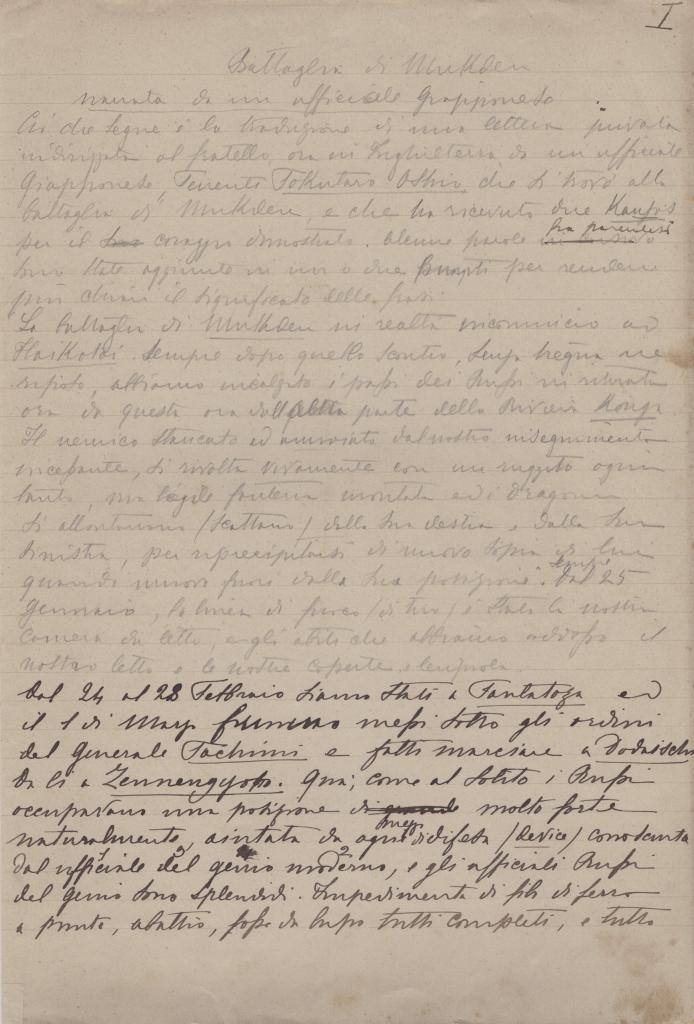 I
Battaglia di Mukden
narrata da un ufficiale Giapponese
Ciò che segue è la traduzione di una lettera privata
indirizzata al fratello, ora in Inghilterra, da un ufficiale
Giapponese, Tenente Tokutaro Oshio, che si trovò alla
battaglia di Mukden, e che ha ricevuto due
per il coraggio dimostrato. Alcune parole fra parentesi
sono state aggiunte in uno o due punti per rendere
più chiaro il significato delle frasi.
La battaglia di Mukden in realtà incominciò ad
Haikotai. Sempre dopo quello scontro, senza tregua nè
riposo, abbiamo incalzato i passi dei Russi in ritirata
ora da questa ora dall'altra parte della Riviera
Il nemico stancato ed annoiato dal nostro inseguimento
incessante, si rivolta vivamente con un ruggito ogni
tanto, ma l'agile fanteria montata ed i dragoni
si allontanano (scattano) dalla sua destra e dalla sua
sinistra, per riprecipitarsi di nuovo sopra di lui
quando muove fuori dalla sua posizione. Dal 25
Gennaio, la linea di fuoco (di tiro) è stata la nostra
camera da letto, e gli abiti che abbiamo addosso il
nostro letto e le nostre coperte e lenzuola.
Dal 24 al 28 Febbraio siamo stati a Tantatoza ed
il 1 di Marzo fummo messi sotto gli ordini
del Generale Tachimi e fatti marciare a
da lì a Zennengyopo. Qua, come al solito i Russi
occupavano una posizione di grande molto forte
naturalmente, aiutata da ogni mezzo di difesa (device) conosciuta
dal ufficiale del genio moderno, e gli ufficiali Russi
del genio sono splendidi. Impedimenti di filo di ferro
a punte, abattis, fosse da lupo tutti completi, e tutto